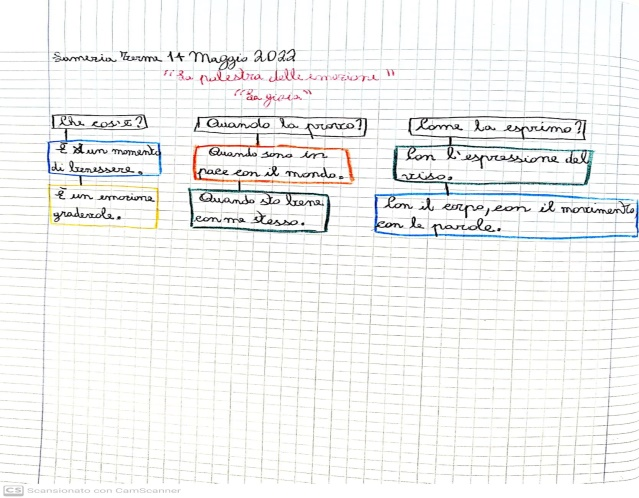 Lamezia Terme 14 Maggio 2022
"La palestra delle emozione"
"La gioia"
Che cos'è?
È un momento
di benessere.
È un emozione
gradevole.
Quando la provo?
Quando sono in
pace con il mondo.
Quando sto bene
con me stesso.
Come la esprimo?
Con l'espressione del
viso.
Con il corpo, con il movimento,
con le parole.
CS Scansionato con CamScanner